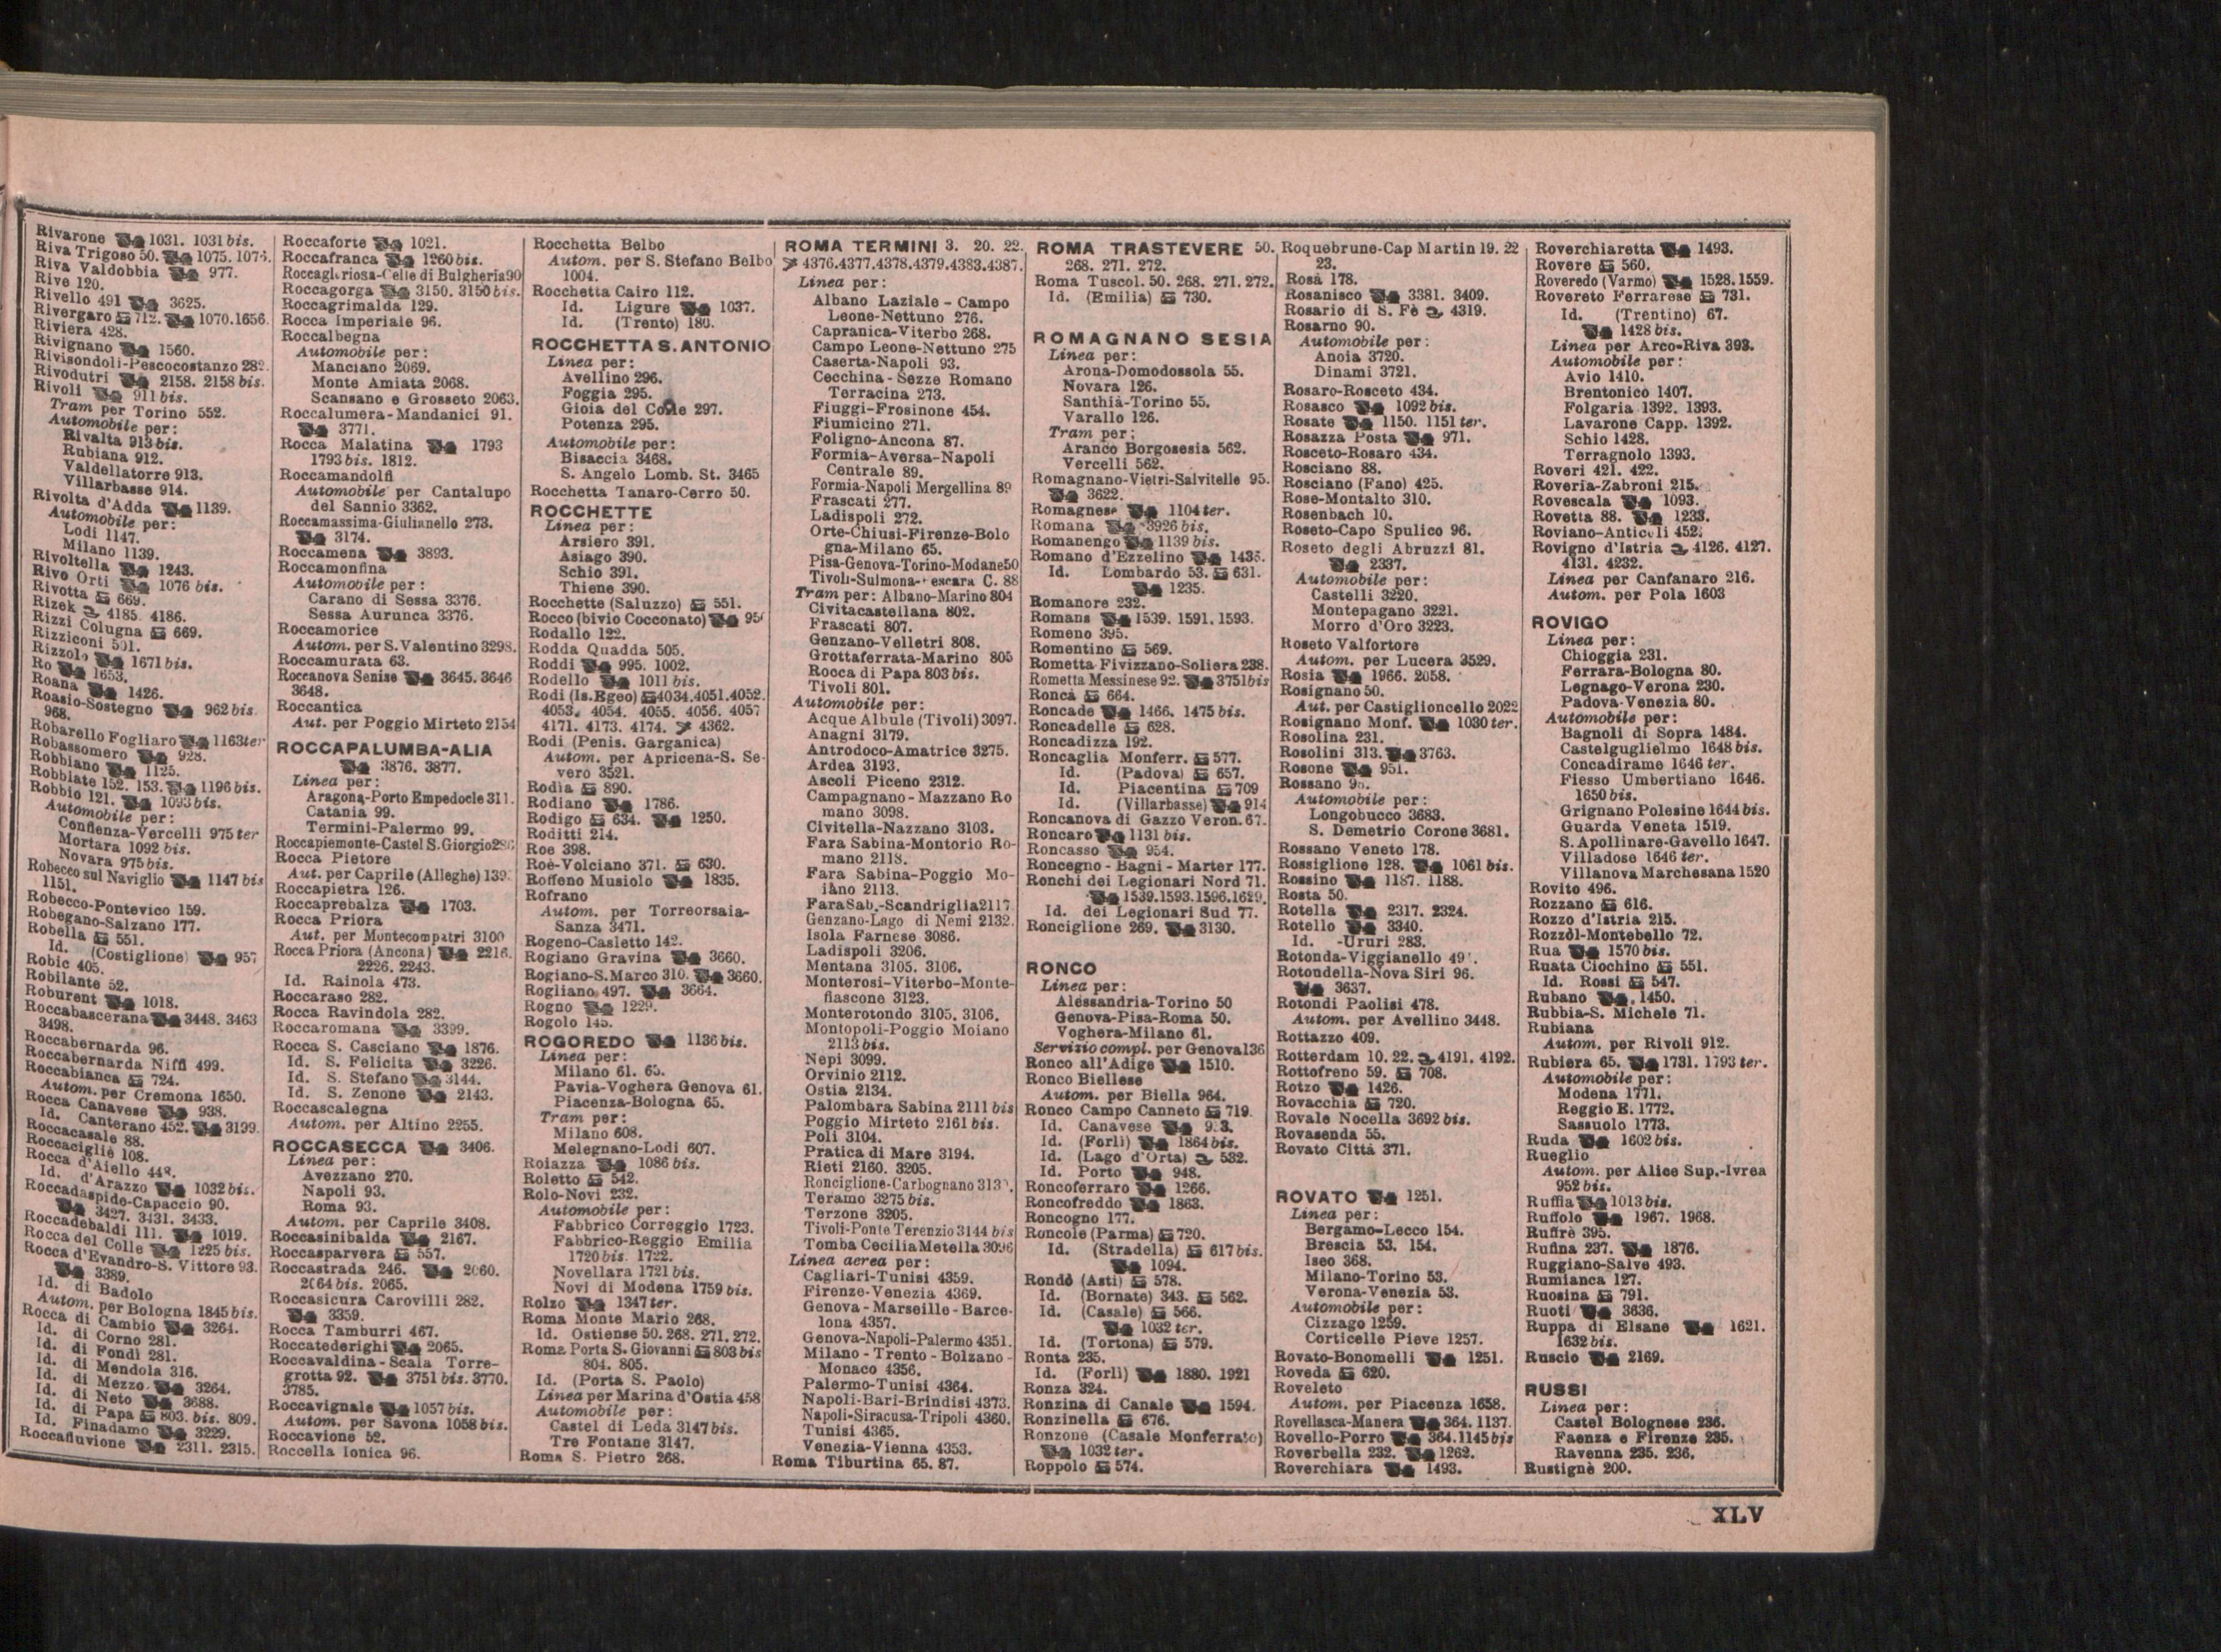 Rivarone 1031. 1031 bis.
Riva Trigoso 50. 1075. 1076.
Riva Valdobbia 977.
Rive 120.
Rivello 491 3625.
Rivergaro 712. 1070. 1656.
Riviera 428.
Rivignano 1560.
Rivisondoli-Pescocostanzo 282.
Rivodutri 2158. 2158 bis.
Rivoli 911 bis.
Tram per Torino 552.
Automobile per:
Rivalta 913 bis.
Rubiana 912.
Valdellatorre 913.
Villarbasse 914.
Rivolta d'Adda 1139.
Automobile per:
Lodi 1147.
Milano 1139.
Rivoltella 1243.
Rivo Orti 1076 bis.
Rivotta 669.
Rizek 4185. 4186.
Rizzi Colugna 669.
Rizziconi 501.
Rizzolo 1671 bis.
Ro 1653.
Roana 1426.
Roasio-Sostegno 962 bis.
968.
Robarello Fogliaro 1163 ter
Robassomero 928.
Robbiano 1125.
Robbiate 152. 153. 1196 bis.
Robbio 121. 1093 bis.
Automobile per:
Confienza-Vercelli 975 ter
Mortara 1092 bis.
Novara 975 bis.
Robecco sul Naviglio 1147 bis
1151.
Robecco-Pontevico 159.
Robegano-Salzano 177.
Robella 551.
Id. (Costiglione) 957
Robic 405.
Robilante 52.
Roburent 1018.
Roccabascerana 3448. 3463
3498.
Roccabernarda 96.
Roccabernarda Niffi 499.
Roccabianca 724.
Autom. per Cremona 1650.
Rocca Canavese 938.
Id. Canterano 452. 3199.
Roccacasale 88.
Roccacigliè 108.
Rocca d'Aiello 448.
Id. d'Arazzo 1032 bis.
Roccadaspide-Capaccio 90.
3427. 3431. 3433.
Roccadebaldi 111. 1019.
Rocca del Colle 1225 bis.
Rocca d'Evandro-S. Vittore 93.
3389.
Id. di Badolo
Autom. per Bologna 1845 bis.
Rocca di Cambio 3264.
Id. di Corno 281.
Id. di Fondi 281.
Id. di Mendola 316.
Id. di Mezzo 3264.
Id. di Neto 3688.
Id. di Papa 803. bis. 809.
Id. Finadamo 3229.
Roccafluvione 2311. 2315.
Roccaforte 1021.
Roccafranca 1260 bis.
Roccagloriosa-Celle di Bulgheria 90
Roccagorga 3150. 3150 bis.
Roccagrimalda 129.
Rocca Imperiale 96.
Roccalbegna
Automobile per:
Manciano 2069.
Monte Amiata 2068.
Scansano e Grosseto 2063.
Roccalumera-Mandanici 91.
3771.
Rocca Malatina 1793
1793 bis. 1812.
Roccamandolfi
Automobile per Cantalupo
del Sannio 3362.
Roccamassima-Giulianello 273.
3174.
Roccamena 3893.
Roccamonfina
Automobile per:
Carano di Sessa 3376.
Sessa Aurunca 3376.
Roccamorice
Autom. per S. Valentino 3298.
Roccamurata 63.
Roccanova Senise 3645. 3646
3648.
Roccantica
Aut. per Poggio Mirteto 2154
ROCCAPALUMBA-ALIA
3876. 3877.
Linea per:
Aragona-Porto Empedocle 311.
Catania 99.
Termini-Palermo 99.
Roccapiemonte-Castel S. Giorgio
Rocca Pietore
Aut. per Caprile (Alleghe)
Roccapietra 126.
Roccaprebalza 1703.
Rocca Priora
Aut. per Montecompatri 3100
Rocca Priora (Ancona) 2216.
2226. 2243.
Id. Rainola 473.
Roccaraso 282.
Rocca Ravindola 282.
Roccaromana 3399.
Rocca S. Casciano 1876.
Id. S. Felicita 3226.
Id. S. Stefano 3144.
Id. S. Zenone 2143.
Roccascalegna
Autom. per Altino 2255.
ROCCASECCA 3406.
Linea per:
Avezzano 270.
Napoli 93.
Roma 93.
Autom. per Caprile 3408.
Roccasinibalda 2167.
Roccasparvera 557.
Roccastrada 246. 2060.
2064 bis. 2065.
Roccasicura Carovilli 282.
3359.
Rocca Tamburri 467.
Roccatederighi 2065.
Roccavaldina-Scala Torre-
grotta 92. 3751 bis. 3770.
3785.
Roccavignale 1057 bis.
Autom. per Savona 1058 bis.
Roccavione 52.
Roccella Ionica 96.
Rocchetta Belbo
Autom. per S. Stefano Belbo
1004.
Rocchetta Cairo 112.
Id. Ligure 1037.
Id. (Trento) 180.
ROCCHETTA S. ANTONIO
Linea per:
Avellino 296.
Foggia 295.
Gioia del Colle 297.
Potenza 295.
Automobile per:
Bisaccia 3468.
S. Angelo Lomb. St. 3465
Rocchetta Tanaro-Cerro 50.
ROCCHETTE
Linea per:
Arsiero 391.
Asiago 390.
Schio 391.
Thiene 390.
Rocchette (Saluzzo) 551.
Rocco (bivio Cocconato)
Rodallo 122.
Rodda Quadda 505.
Roddi 995. 1002.
Rodello 1011 bis.
Rodi (Is. Egeo) 4034. 4051. 4052.
4053. 4054. 4055. 4056. 4057
4171. 4173. 4174. 4362.
Rodi (Penis. Garganica)
Autom. per Apricena-S. Se-
vero 3521.
Rodia 890.
Rodiano 1786.
Rodigo 634. 1250.
Roditti 214.
Roe 398.
Roè-Volciano 371. 630.
Roffeno Musiolo 1835.
Rofrano
Autom. per Torreorsaia-
Sanza 3471.
Rogeno-Casletto 142.
Rogiano Gravina 3660.
Rogiano-S. Marco 310. 3660.
Rogliano 497. 3664.
Rogno 1229.
Rogolo 145.
ROGOREDO 1136 bis.
Linea per:
Milano 61. 65.
Pavia-Voghera Genova 61.
Piacenza-Bologna 65.
Tram per:
Milano 608.
Melegnano-Lodi 607.
Roiazza 1086 bis.
Roletto 542.
Rolo-Novi 232.
Automobile per:
Fabbrico Correggio 1723.
Fabbrico-Reggio Emilia
1720 bis. 1722.
Novellara 1721 bis.
Novi di Modena 1759 bis.
Rolzo 1347 ter.
Roma Monte Mario 268.
Id. Ostiense 50. 268. 271. 272.
Roma Porta S. Giovanni 803 bis
804. 805.
Id. (Porta S. Paolo)
Linea per Marina d'Ostia 458
Automobile per:
Castel di Leda 3147 bis.
Tre Fontane 3147.
Roma S. Pietro 268.
ROMA TERMINI 3. 20. 22.
4376. 4377. 4378. 4379. 4383. 4387.
Linea per:
Albano Laziale - Campo
Leone-Nettuno 276.
Capranica-Viterbo 268.
Campo Leone-Nettuno 275
Caserta-Napoli 93.
Cecchina - Sezze Romano
Terracina 273.
Fiuggi-Frosinone 454.
Fiumicino 271.
Foligno-Ancona 87.
Formia-Aversa-Napoli
Centrale 89.
Formia-Napoli Mergellina 89
Frascati 277.
Ladispoli 272.
Orte-Chiusi-Firenze-Bolo
gna-Milano 65.
Pisa-Genova-Torino-Modane 50
Tivoli-Sulmona-Pescara C. 88
Tram per: Albano-Marino 804
Civitacastellana 802.
Frascati 807.
Genzano-Velletri 808.
Grottaferrata-Marino 805
Rocca di Papa 803 bis.
Tivoli 801.
Automobile per:
Acque Albule (Tivoli) 3097.
Anagni 3179.
Antrodoco-Amatrice 3275.
Ardea 3193.
Ascoli Piceno 2312.
Campagnano - Mazzano Ro
mano 3098.
Civitella-Nazzano 3103.
Fara Sabina-Montorio Ro-
mano 2118.
Fara Sabina-Poggio Mo-
iano 2113.
Fara Sab.-Scandriglia 2117
Genzano-Lago di Nemi 2132.
Isola Farnese 3086.
Ladispoli 3206.
Mentana 3105. 3106.
Monterosi-Viterbo-Monte-
fiascone 3123.
Monterotondo 3105. 3106.
Montopoli-Poggio Moiano
2113 bis.
Nepi 3099.
Orvinio 2112.
Ostia 2134.
Palombara Sabina 2111 bis
Poggio Mirteto 2161 bis.
Poli 3104.
Pratica di Mare 3194.
Rieti 2160. 3205.
Ronciglione-Carbognano
Teramo 3275 bis.
Terzone 3205.
Tivoli-Ponte Terenzio 3144 bis
Tomba Cecilia Metella 3096
Linea aerea per:
Cagliari-Tunisi 4359.
Firenze-Venezia 4369.
Genova - Marseille - Barce-
lona 4357.
Genova-Napoli-Palermo 4351.
Milano - Trento - Bolzano -
Monaco 4356.
Palermo-Tunisi 4364.
Napoli-Bari-Brindisi 4373.
Napoli-Siracusa-Tripoli 4360.
Tunisi 4365.
Venezia-Vienna 4353.
Roma Tiburtina 65. 87.
ROMA TRASTEVERE 50.
268. 271. 272.
Roma Tuscol. 50. 268. 271. 272.
Id. (Emilia) 730.
ROMAGNANO SESIA
Linea per:
Arona-Domodossola 55.
Novara 126.
Santhià-Torino 55.
Varallo 126.
Tram per:
Aranco Borgosesia 562.
Vercelli 562.
Romagnano-Vietri-Salvitelle 95.
3622.
Romagnese 1104 ter.
Romana 3926 bis.
Romanengo 1139 bis.
Romano d'Ezzelino 1435.
Id. Lombardo 53. 631.
1235.
Romanore 232.
Romans 1539. 1591. 1593.
Romeno 395.
Romentino 569.
Rometta Fivizzano-Soliera 238.
Rometta Messinese 92. 3751 bis
Roncà 664.
Roncade 1466. 1475 bis.
Roncadelle 628.
Roncadizza 192.
Roncaglia Monferr. 577.
Id. (Padova) 657.
Id. Piacentina 709
Id. (Villarbasse) 914
Roncanova di Gazzo Veron. 67.
Roncaro 1131 bis.
Roncasso 954.
Roncegno - Bagni - Marter 177.
Ronchi dei Legionari Nord 71.
1539. 1593. 1596. 1629.
Id. dei Legionari Sud 77.
Ronciglione 269. 3130.
RONCO
Linea per:
Alessandria-Torino 50
Genova-Pisa-Roma 50.
Voghera-Milano 61.
Servizio compl. per Genova 136
Ronco all'Adige 1510.
Ronco Biellese
Autom. per Biella 964.
Ronco Campo Canneto 719.
Id. Canavese
Id. (Forlì) 1864 bis.
Id. (Lago d'Orta) 532.
Id. Porto 948.
Roncoferraro 1266.
Roncofreddo 1863.
Roncogno 177.
Roncole (Parma) 720.
Id. (Stradella) 617 bis.
1094.
Rondò (Asti) 578.
Id. (Bornate) 343. 562.
Id. (Casale) 566.
1032 ter.
Id. (Tortona) 579.
Ronta 235.
Id. (Forlì) 1880. 1921
Ronza 324.
Ronzina di Canale 1594.
Ronzinella 676.
Ronzone (Casale Monferrato)
1032 ter.
Roppolo 574.
Roquebrune-Cap Martin 19. 22
23.
Rosà 178.
Rosanisco 3381. 3409.
Rosario di S. Fè 4319.
Rosarno 90.
Automobile per:
Anoia 3720.
Dinami 3721.
Rosaro-Rosceto 434.
Rosasco 1092 bis.
Rosate 1150. 1151 ter.
Rosazza Posta 971.
Rosceto-Rosaro 434.
Rosciano 88.
Rosciano (Fano) 425.
Rose-Montalto 310.
Rosenbach 10.
Roseto-Capo Spulico 96.
Roseto degli Abruzzi 81.
2337.
Automobile per:
Castelli 3220.
Montepagano 3221.
Morro d'Oro 3223.
Roseto Valfortore
Autom. per Lucera 3529.
Rosia 1966. 2058.
Rosignano 50.
Aut. per Castiglioncello 2022
Rosignano Monf. 1030 ter.
Rosolina 231.
Rosolini 313. 3763.
Rosone 951.
Rossano 95.
Automobile per:
Longobucco 3683.
S. Demetrio Corone 3681.
Rossano Veneto 178.
Rossiglione 128. 1061 bis.
Rossino 1187. 1188.
Rosta 50.
Rotella 2317. 2324.
Rotello 3340.
Id. -Ururi 283.
Rotonda-Viggianello
Rotondella-Nova Siri 96.
3637.
Rotondi Paolisi 478.
Autom. per Avellino 3448.
Rottazzo 409.
Rotterdam 10. 22. 4191. 4192.
Rottofreno 59. 708.
Rotzo 1426.
Rovacchia 720.
Rovale Nocella 3692 bis.
Rovasenda 55.
Rovato Città 371.
ROVATO 1251.
Linea per:
Bergamo-Lecco 154.
Brescia 53. 154.
Iseo 368.
Milano-Torino 53.
Verona-Venezia 53.
Automobile per:
Cizzago 1259.
Corticelle Pieve 1257.
Rovato-Bonomelli 1251.
Roveda 620.
Roveleto
Autom. per Piacenza 1658.
Rovellasca-Manera 364. 1137.
Rovello-Porro 364. 1145 bis
Roverbella 232. 1262.
Roverchiara 1493.
Roverchiaretta 1493.
Rovere 560.
Roveredo (Varmo) 1528. 1559.
Rovereto Ferrarese 731.
Id. (Trentino) 67.
1428 bis.
Linea per Arco-Riva 393.
Automobile per:
Avio 1410.
Brentonico 1407.
Folgaria 1392. 1393.
Lavarone Capp. 1392.
Schio 1428.
Terragnolo 1393.
Roveri 421. 422.
Roveria-Zabroni 215.
Rovescala 1093.
Rovetta 88. 1233.
Roviano-Anticoli 452.
Rovigno d'Istria 4126. 4127.
4131. 4232.
Linea per Canfanaro 216.
Autom. per Pola 1603
ROVIGO
Linea per:
Chioggia 231.
Ferrara-Bologna 80.
Legnago-Verona 230.
Padova-Venezia 80.
Automobile per:
Bagnoli di Sopra 1484.
Castelguglielmo 1648 bis.
Concadirame 1646 ter.
Fiesso Umbertiano 1646.
1650 bis.
Grignano Polesine 1644 bis.
Guarda Veneta 1519.
S. Apollinare-Gavello 1647.
Villadose 1646 ter.
Villanova Marchesana 1520
Rovito 496.
Rozzano 616.
Rozzo d'Istria 215.
Rozzòl-Montebello 72.
Rua 1570 bis.
Ruata Ciochino 551.
Id. Rossi 547.
Rubano 1450.
Rubbia-S. Michele 71.
Rubiana
Autom. per Rivoli 912.
Rubiera 65. 1731. 1793 ter.
Automobile per:
Modena 1771.
Reggio E. 1772.
Sassuolo 1773.
Ruda 1602 bis.
Rueglio
Autom. per Alice Sup.-Ivrea
952 bis.
Ruffia 1013 bis.
Ruffolo 1967. 1968.
Ruffrè 395.
Rufina 237. 1876.
Ruggiano-Salve 493.
Rumianca 127.
Ruosina 791.
Ruoti 3636.
Ruppa di Elsane 1621.
1632 bis.
Ruscio 2169.
RUSSI
Linea per:
Castel Bolognese 236.
Faenza e Firenze 235.
Ravenna 235. 236.
Rustignè 200.
XLV